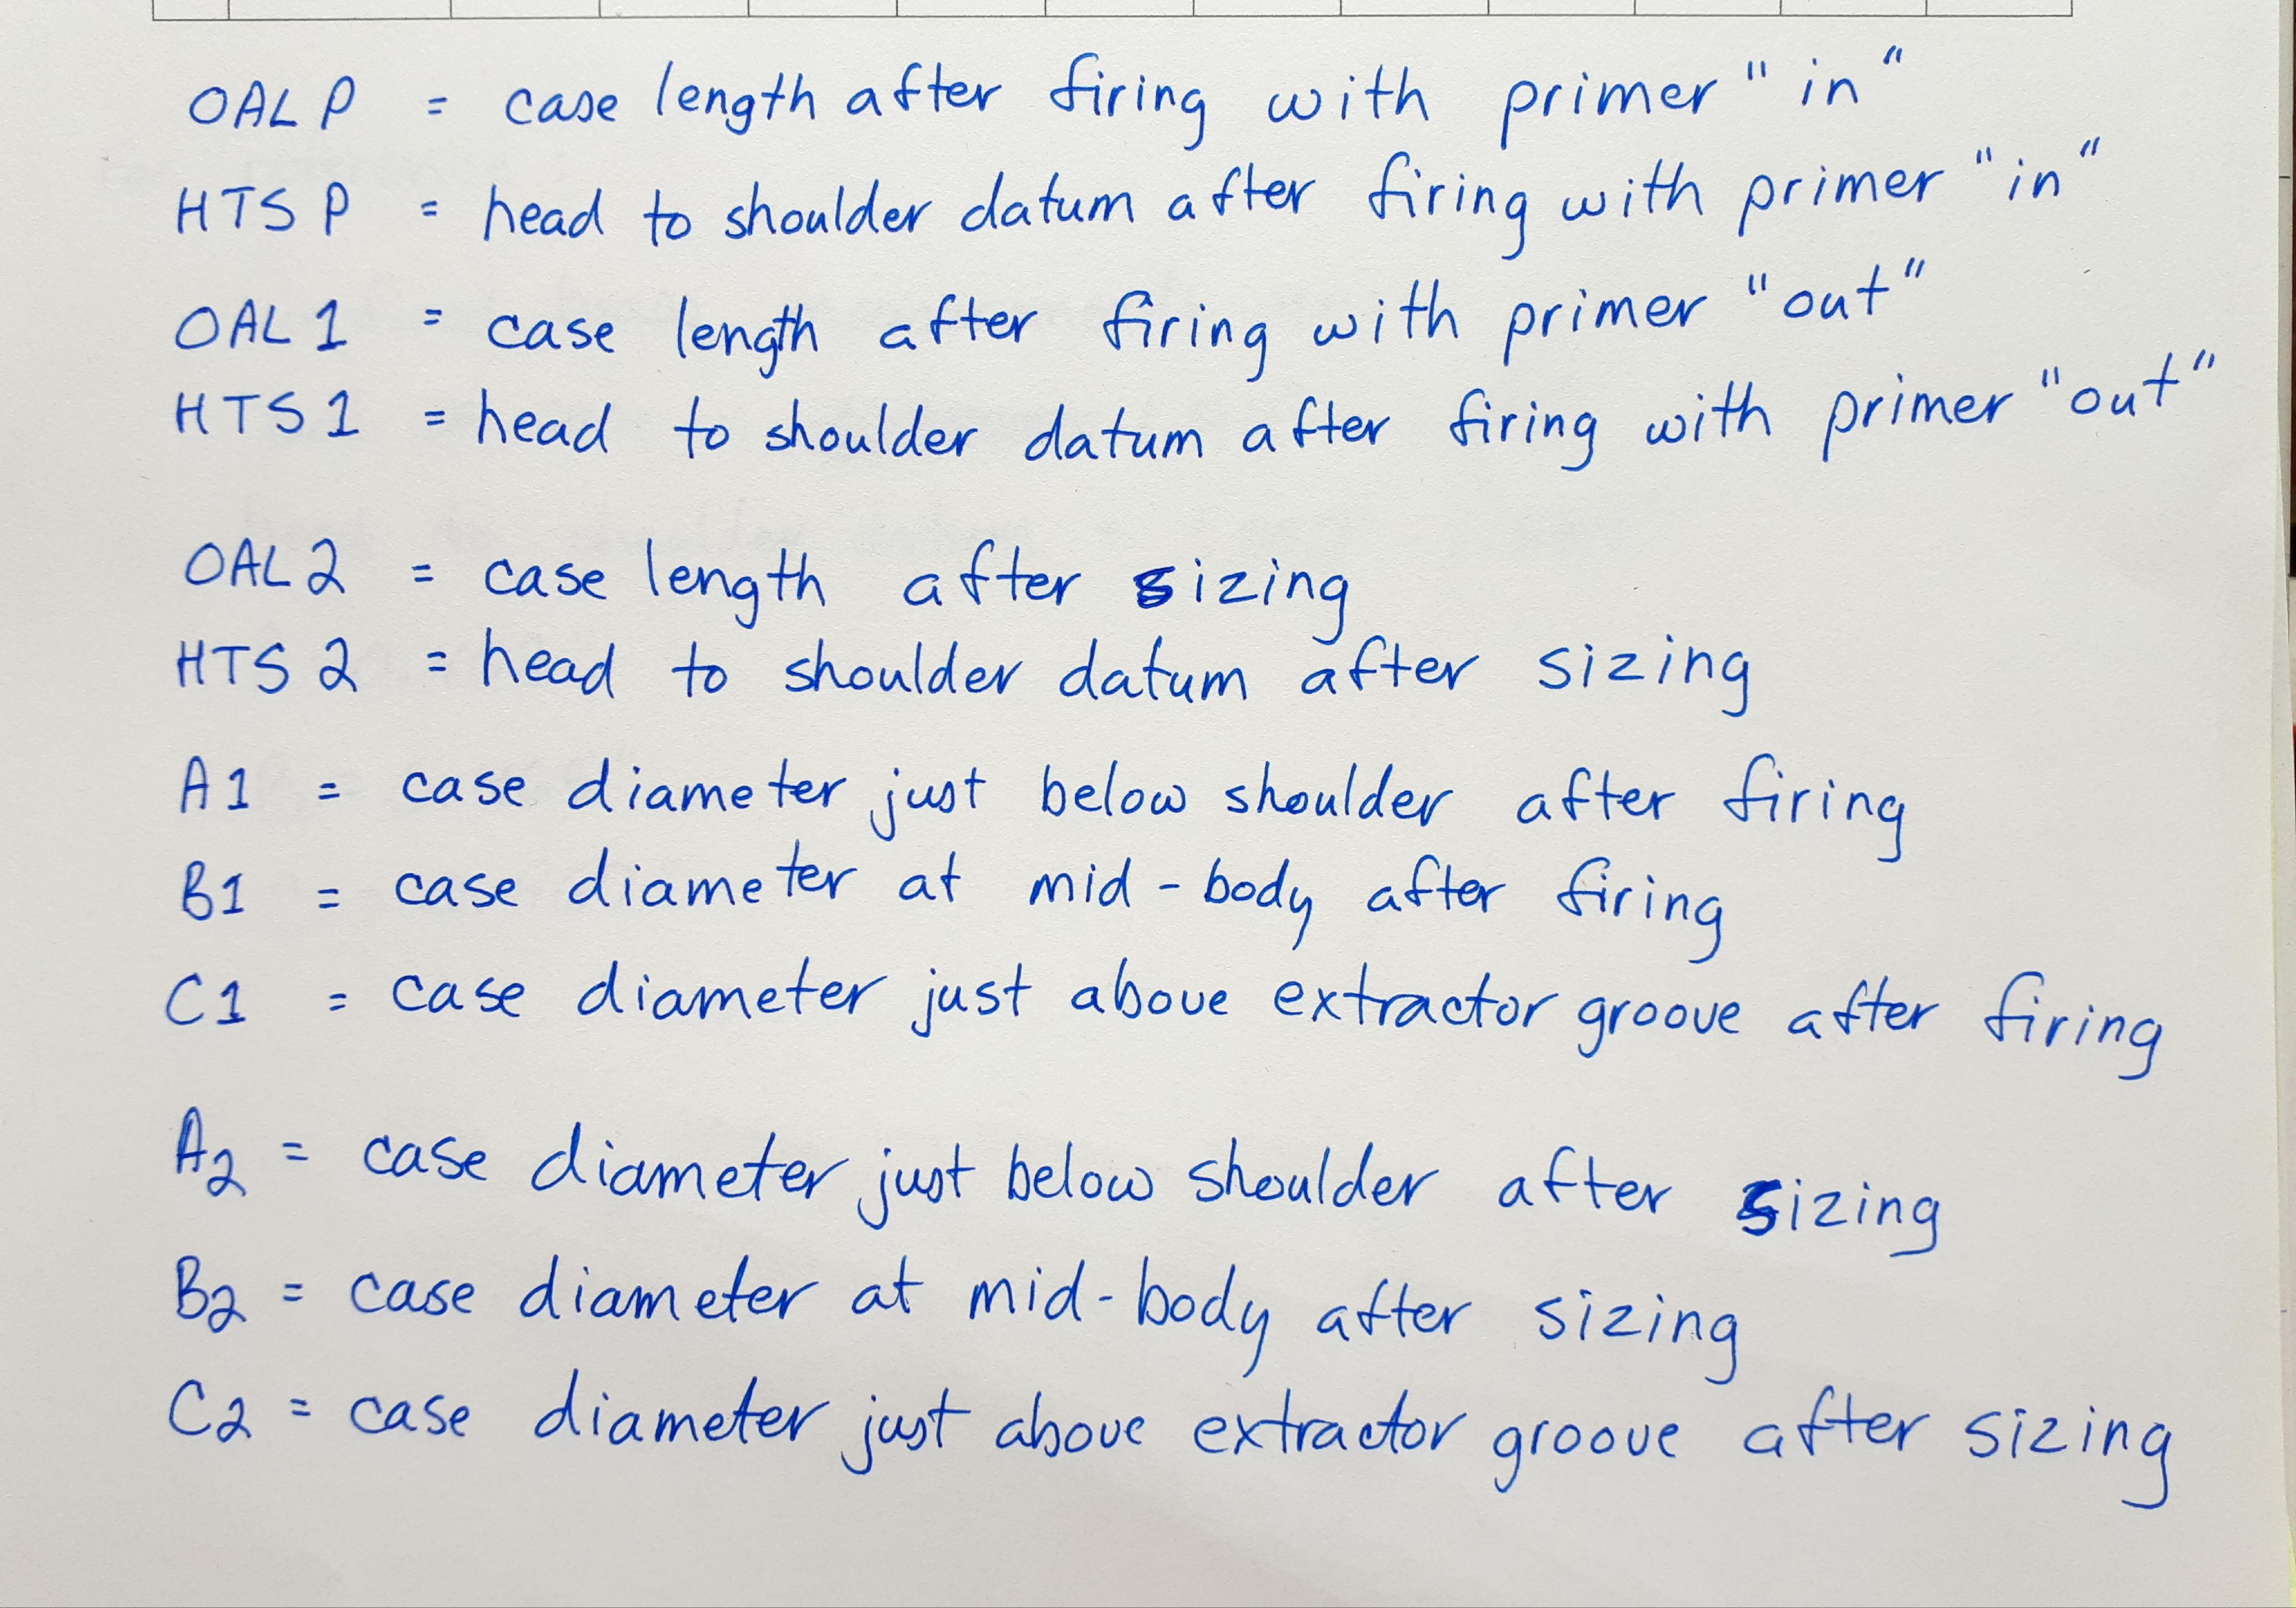 OAL P = case length after firing with primer "in"
HTS P = head to shoulder datum after firing with primer "in"
OAL 1 = case length after firing with primer "out"
HTS 1 = head to shoulder datum after firing with primer "out"
OAL 2 = case length after sizing
HTS 2 = head to shoulder datum after sizing
A1 = case diameter just below shoulder after firing
B1 = case diameter at mid-body after firing
C1 = case diameter just above extractor groove after firing
A2 = case diameter just below shoulder after sizing
B2 = case diameter at mid-body after sizing
C2 = case diameter just above extractor groove after sizing